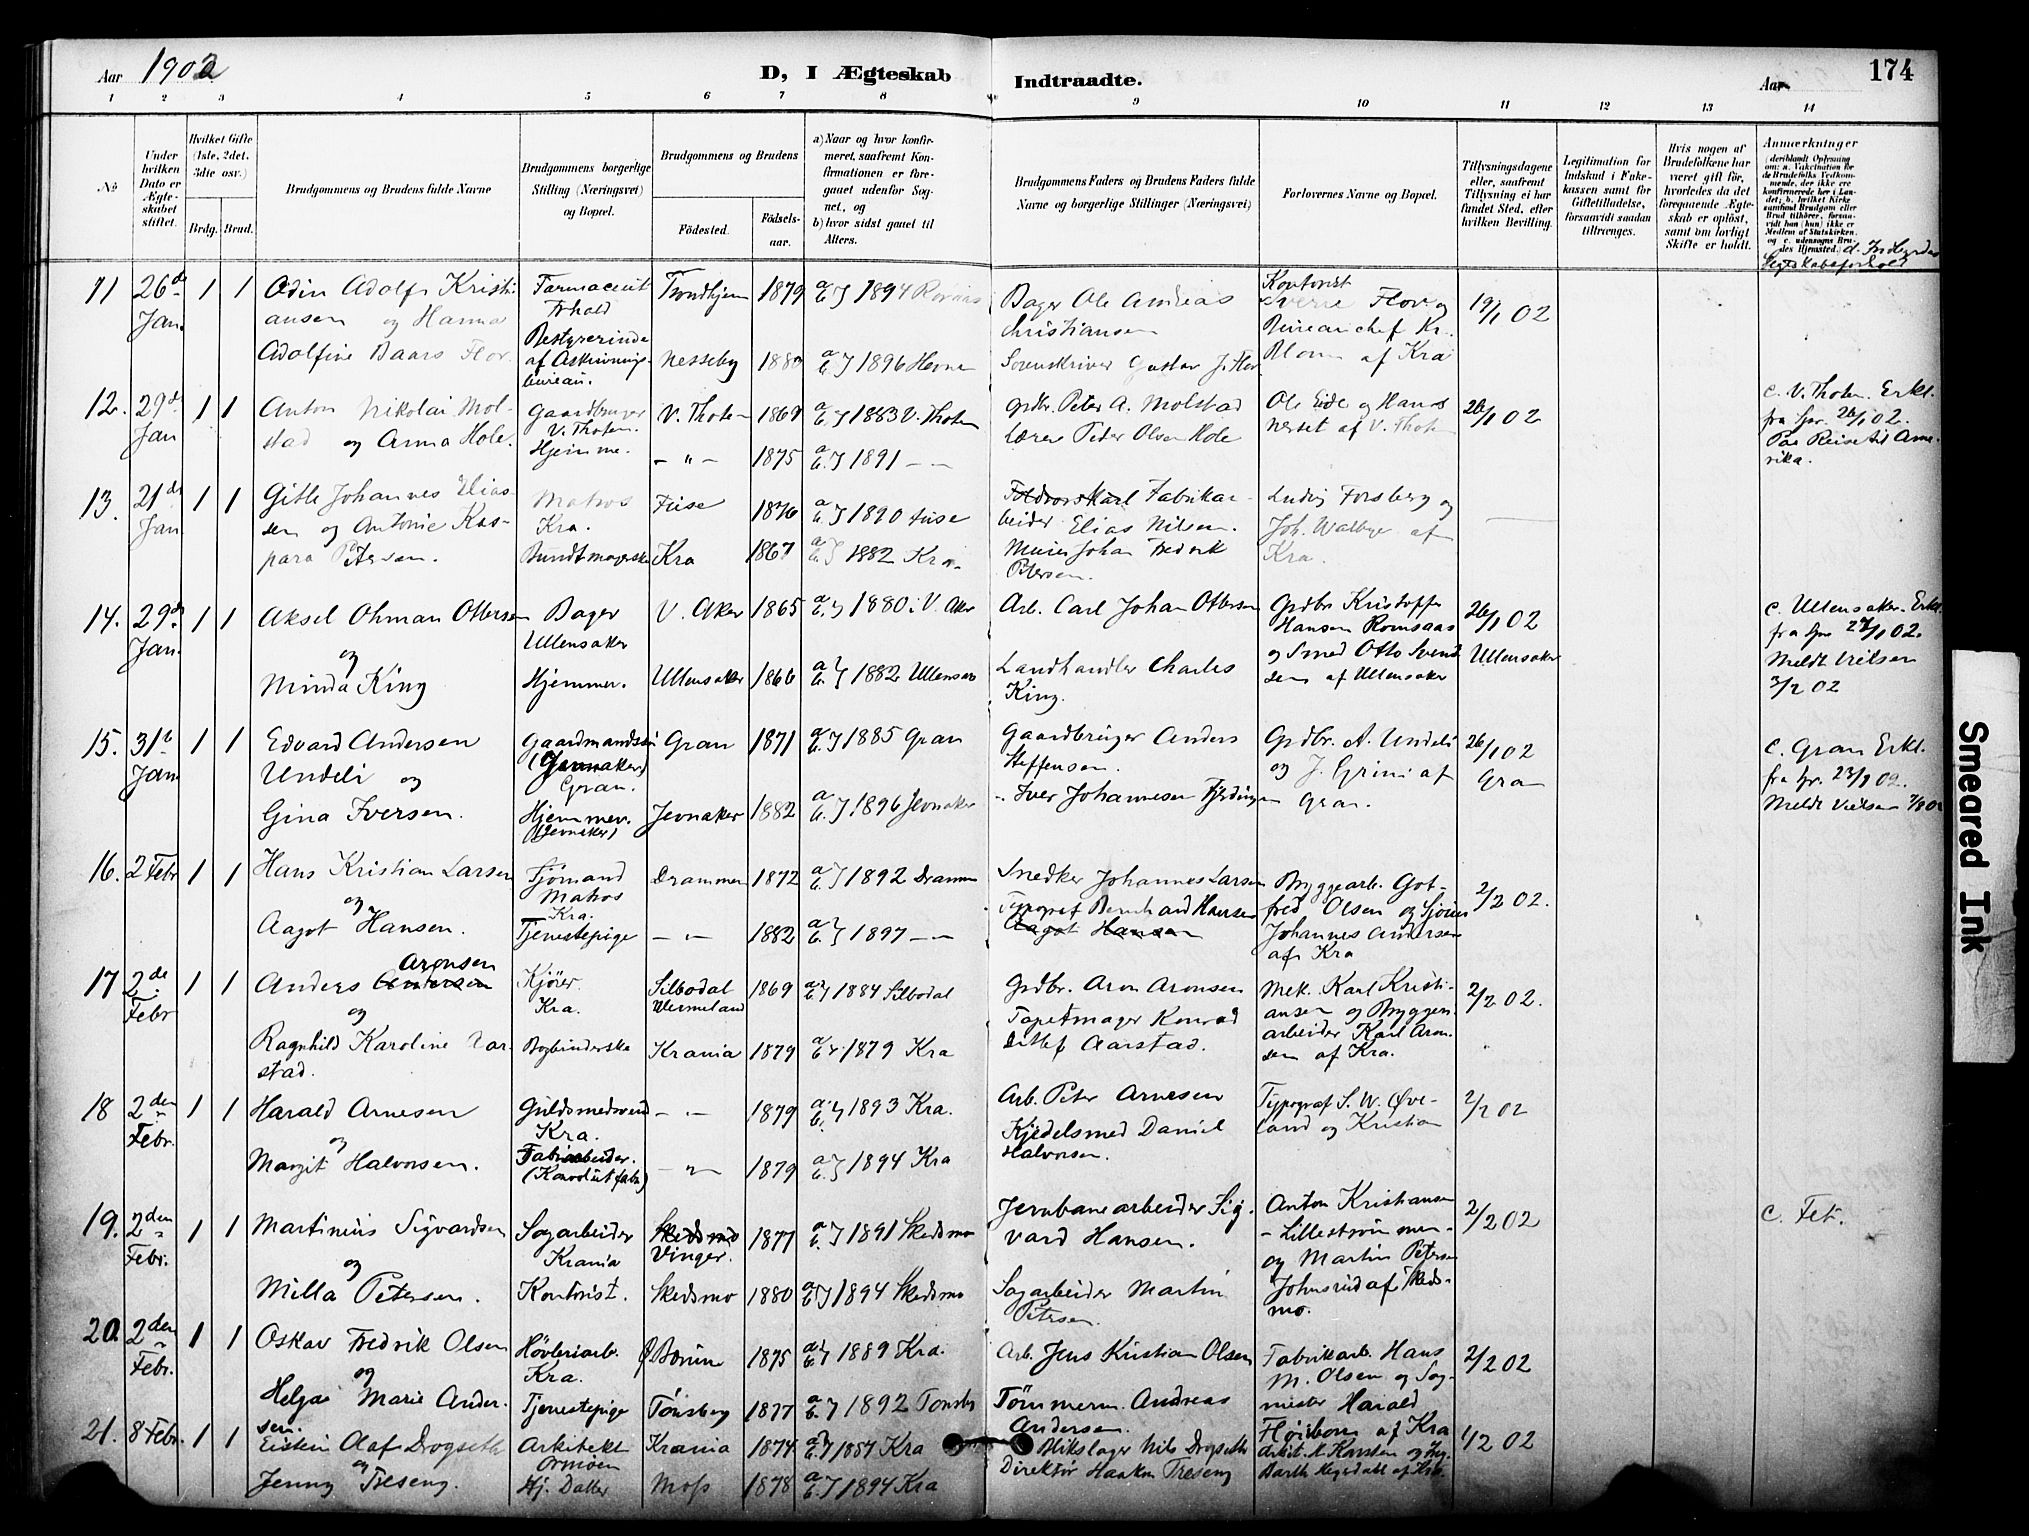 Aar 1902
D, I Ægteskab Indtraadte.
Aar
174
1 2 3 4 5 6 7 8 9 10 11 12 13 14
No
Under hvilken Dato er Ægteskabet stiftet.
Hvilket Gifte (1ste, 2det, 3die osv.)
Brdg. Brud.
Brudgommens og Brudens fulde Navne
Brudgommens borgerlige Stilling (Næringsvei) og Bopæl.
Brudgommens og Brudens
Fødested. Fødselsaar.
a) Naar og hvor konfirmeret, saafremt Konfirmationen er foregaaet udenfor Sognet, og
b) hvor sidst gaaet til Alters.
Brudgommens Faders og Brudens Faders fulde Navne og borgerlige Stillinger (Næringsvei)
Forlovernes Navne og Bopæl.
Tillysningsdagene eller, saafremt Tillysning ei har fundet Sted, efter hvilken Bevilling.
Legitimation for Indskud i Enkekassen samt for Giftetilladelse, forsaavidt saadan tiltrænges.
Hvis nogen af Brudefolkene har været gift før, hvorledes da det foregaaende Ægteskab er opløst, samt om lovligt Skifte er holdt.
Anmærkninger
11 26de Jan. 1 1 Odin Adolf Kristiansen og Hanna Adolfine Baars Flor.
Farmaceut Trhald Trondhjem 1879 1894 Røraas
Bestyrerinde af Afskrivningsbureau. Nesseby 1880 1896 Hevne
Bager Ole Andreas Christiansen
Sorenskriver Gustav J. Flor
Kontorist Sverre Flor og Bureauchef Kr. Blom af Kra
19/1 02
12. 29de Jan 1 1 Anton Nikolai Molstad og Anna Hole.
Gaardbruger V. Thoten. V. Thoten 1869 1883 V. Thoten
Hjemme. - " - 1875 1891 - -
Grdbr. Peter A. Molstad
Lærer Peder Olsen Hole
Ole Eide og Hans Nerset af V. Thoten
26/1 02
c. V. Thoten. Erkl. fra Spr. 26/1 02. Paa Reise til Amerika.
13. 21de Jan 1 1 Gitle Johannes Eliassen og Antonie Kaspara Petersen.
Matros Kra. Fuse 1876 1890 Fuse
Bundtmagerske Kra 1867 1882 Kra
Fabrikarbeider Elias Nilsen.
Murer Johan Fredrik Petersen.
Ludvig Forsberg og Joh. Walbye af Kra.
14. 29de Jan. 1 1 Aksel Ohman Ottersen og Minda King
Bager Ullensaker V. Aker 1865 1880 i V. Aker
Hjemmev. Ullensaker 1866 1882 Ullensaker
Arb. Carl Johan Ottersen
Landhandler Charles King.
Grdbr Kristoffer Hansen Romsaas og Smed Otto Svendsen af Ullensaker
26/1 02 Ullensaker
c. Ullensaker. Erkl. fra Spr 27/1 02. Meldt Vielsen 3/2 02
15. 31te Jan. 1 1 Edvard Andersen Undeli og Gina Iversen.
Gaardmandssøn (Jevnaker) Gran. Gran 1871 1885 Gran
Hjemmev. (Jevnaker) Jevnaker 1882 1896 Jevnaker
Gaardbruger Anders Steffensen.
- Iver Johannesen Fjeldingen
Grdbr. A. Undeli og J. Grini af Gran.
26/1 02 Gran
c. Gran Erkl. fra Spr. 23/1 02. Meldt Vielsen
16. 2 Febr 1 1 Hans Kristian Larsen og Aagot Hansen.
Sjømand Matros Kra. Drammen 1872 1892 Drammen
Tjenestepige - " - 1882 1897 - -
Snedker Johannes Larsen
Typograf Bernhard Hansen
Aagot Hansen
Byggearb. Gotfred Olsen og Johannes Andersen af Kra
2/2 02.
17 2de Febr 1 1 Anders Andersen Aronsen og Ragnhild Karoline Aarstad.
Kjører Kra. Silbodal Wermeland 1869 1884 Silbodal
Bogbinderske Krania 1879 1879 Kra
Grdbr. Aron Aronsen
Tapetmager Konrad Ditlef Aarstad.
Mek. Karl Kristiansen og Byggearbeider Karl Aronsen af Kra.
2/2 02.
18 2den Febr. 1 1 Harald Arnesen og Margit Halvorsen.
Guldsmedsvend Kra. - " - 1879 1893 Kra.
Fabrikarbeider. (Konvolutfabr) - " - 1879 1894 Kra
Arb. Peter Arnesen
Kjedelsmed Daniel Halvorsen.
Typograf S. W. Øveland og Kristian
2/2 02
19. 2den Febr. 1 1 Martinius Sigvardsen og Milla Petersen.
Sagarbeider Krania Skedsmo Vinger. 1877 1891 Skedsmo
Kontorist. Skedsmo 1880 1894 Skedsmo
Jernbanearbeider Sigvard Hansen.
Sagarbeider Martin Petersen.
Anton Kristiansen - Lillestrømmen - og Martin Petersen Johnsrud af Skedsmo.
2/2 02
c. Fet.
20 2den Febr. 1 1 Oskar Fredrik Olsen og Helga Marie Andersen.
Høvleriarb. Kra. Ø. Bærum 1875 1889 Kra.
Tjenestepige Tønsberg 1877 1892 Tønsbg
Arb. Jens Kristian Olsen
Tømmerm. Andreas Andersen.
Fabrikarb. Hans M. Olsen og Sagmester Harald Fløisbonn af Kra
2/2 02
21. 8 Febr. 1 1 Eistein Olaf Drogseth og Jenny Treseng.
Arkitekt Ormøen Krania 1874 Kra
Hj. Datter Moss 1878 1894 Kra
Nils Drogseth
Direktør Haakon Treseng
Arkit. K. Karsten og
2/2 02
Smeared Ink